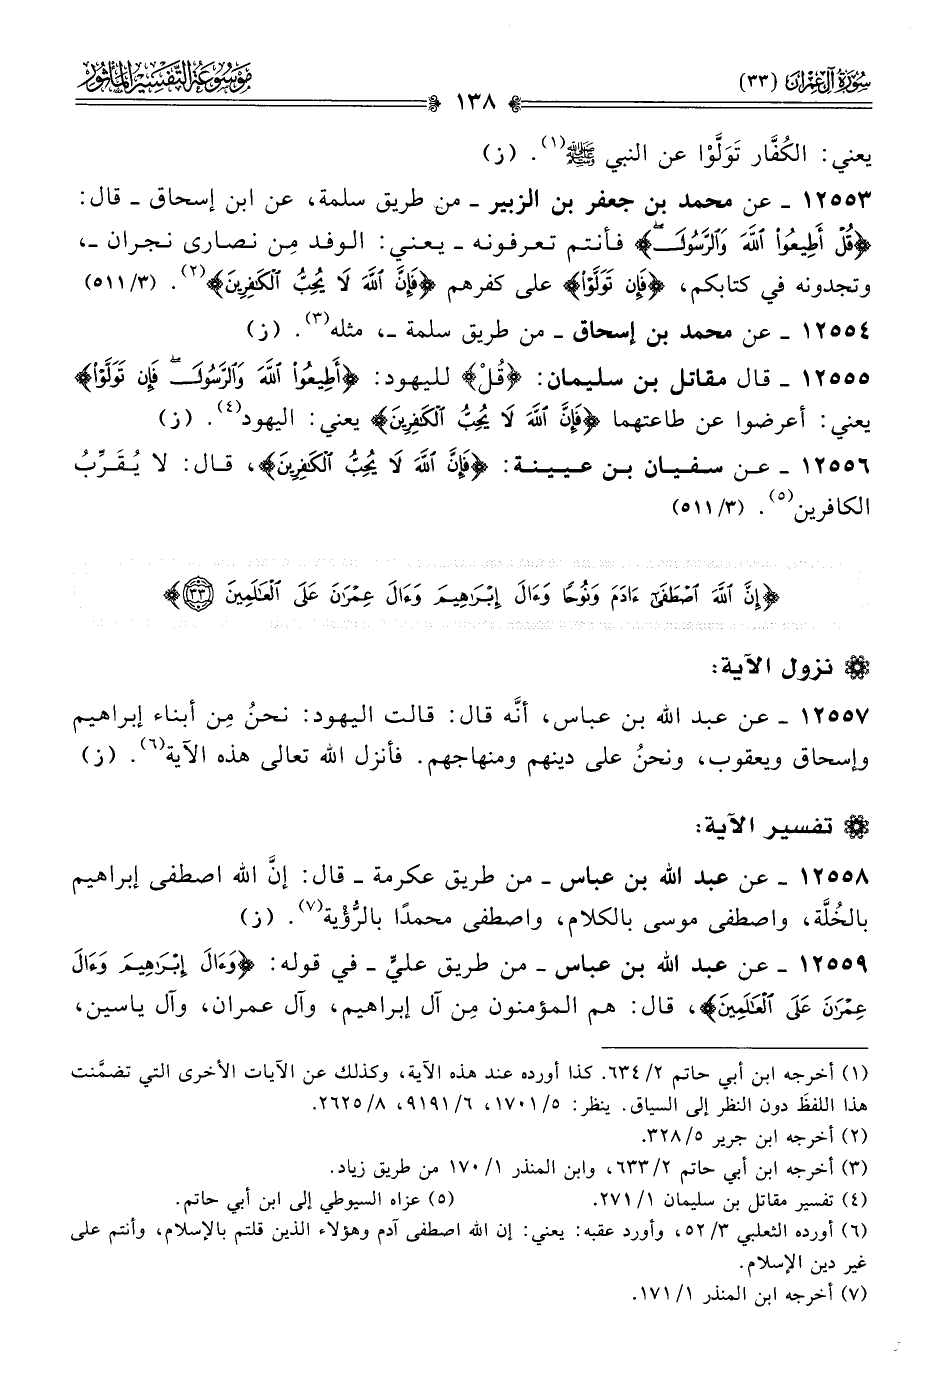 سُورَةُ آلِ عِمْرَانَ (٣٣)
مَوْسُوعَة التَّفْسِيرِ المَأثُور
١٣٨
يعني: الكُفَّار تَوَلَّوْا عن النبي ﷺ(١). (ز)
١٢٥٥٣ ـ عن محمد بن جعفر بن الزبير ـ من طريق سلمة، عن ابن إسحاق ـ قال:
﴿قُلْ أَطِيعُواْ ٱللَّهَ وَٱلرَّسُولَۖ﴾ فأنتم تعرفونه ـ يعني: الوفد مِن نصارى نجران ـ،
وتجدونه في كتابكم، ﴿فَإِن تَوَلَّوْاْ﴾ على كفرهم ﴿فَإِنَّ ٱللَّهَ لَا يُحِبُّ ٱلْكَٰفِرِينَ﴾(٢). (٥١١/٣)
١٢٥٥٤ ـ عن محمد بن إسحاق ـ من طريق سلمة ـ، مثله(٣). (ز)
١٢٥٥٥ ـ قال مقاتل بن سليمان: ﴿قُلْ﴾ لليهود: ﴿أَطِيعُواْ ٱللَّهَ وَٱلرَّسُولَۖ فَإِن تَوَلَّوْاْ﴾
يعني: أعرضوا عن طاعتهما ﴿فَإِنَّ ٱللَّهَ لَا يُحِبُّ ٱلْكَٰفِرِينَ﴾ يعني: اليهود(٤). (ز)
١٢٥٥٦ ـ عن سفيان بن عيينة: ﴿فَإِنَّ ٱللَّهَ لَا يُحِبُّ ٱلْكَٰفِرِينَ﴾، قال: لا يُقَرِّبُ
الكافرين(٥). (٥١١/٣)
﴿إِنَّ ٱللَّهَ ٱصْطَفَىٰٓ ءَادَمَ وَنُوحًا وَءَالَ إِبْرَٰهِيمَ وَءَالَ عِمْرَٰنَ عَلَى ٱلْعَٰلَمِينَ ٣٣﴾
نزول الآية:
١٢٥٥٧ ـ عن عبد الله بن عباس، أنَّه قال: قالت اليهود: نحنُ مِن أبناء إبراهيم
وإسحاق ويعقوب، ونحنُ على دينهم ومنهاجهم. فأنزل الله تعالى هذه الآية(٦). (ز)
تفسير الآية:
١٢٥٥٨ ـ عن عبد الله بن عباس ـ من طريق عكرمة ـ قال: إنَّ الله اصطفى إبراهيم
بالخُلَّة، واصطفى موسى بالكلام، واصطفى محمدًا بالرُّؤْية(٧). (ز)
١٢٥٥٩ ـ عن عبد الله بن عباس ـ من طريق عليٍّ ـ في قوله: ﴿وَءَالَ إِبْرَٰهِيمَ وَءَالَ
عِمْرَٰنَ عَلَى ٱلْعَٰلَمِينَ﴾، قال: هم المؤمنون مِن آل إبراهيم، وآل عمران، وآل ياسين،
(١) أخرجه ابن أبي حاتم ٢/ ٦٣٤. كذا أورده عند هذه الآية، وكذلك عن الآيات الأخرى التي تضمَّنت
هذا اللفظَ دون النظر إلى السياق. ينظر: ٥/ ١٧٠١، ٦/ ٩١٩١، ٨/ ٢٦٢٥.
(٢) أخرجه ابن جرير ٥/ ٣٢٨.
(٣) أخرجه ابن أبي حاتم ٢/ ٦٣٣، وابن المنذر ١/ ١٧٠ من طريق زياد.
(٤) تفسير مقاتل بن سليمان ١/ ٢٧١. (٥) عزاه السيوطي إلى ابن أبي حاتم.
(٦) أورده الثعلبي ٣/ ٥٢، وأورد عقبه: يعني: إن الله اصطفى آدم وهؤلاء الذين قلتم بالإسلام، وأنتم على
غير دين الإسلام.
(٧) أخرجه ابن المنذر ١/ ١٧١.